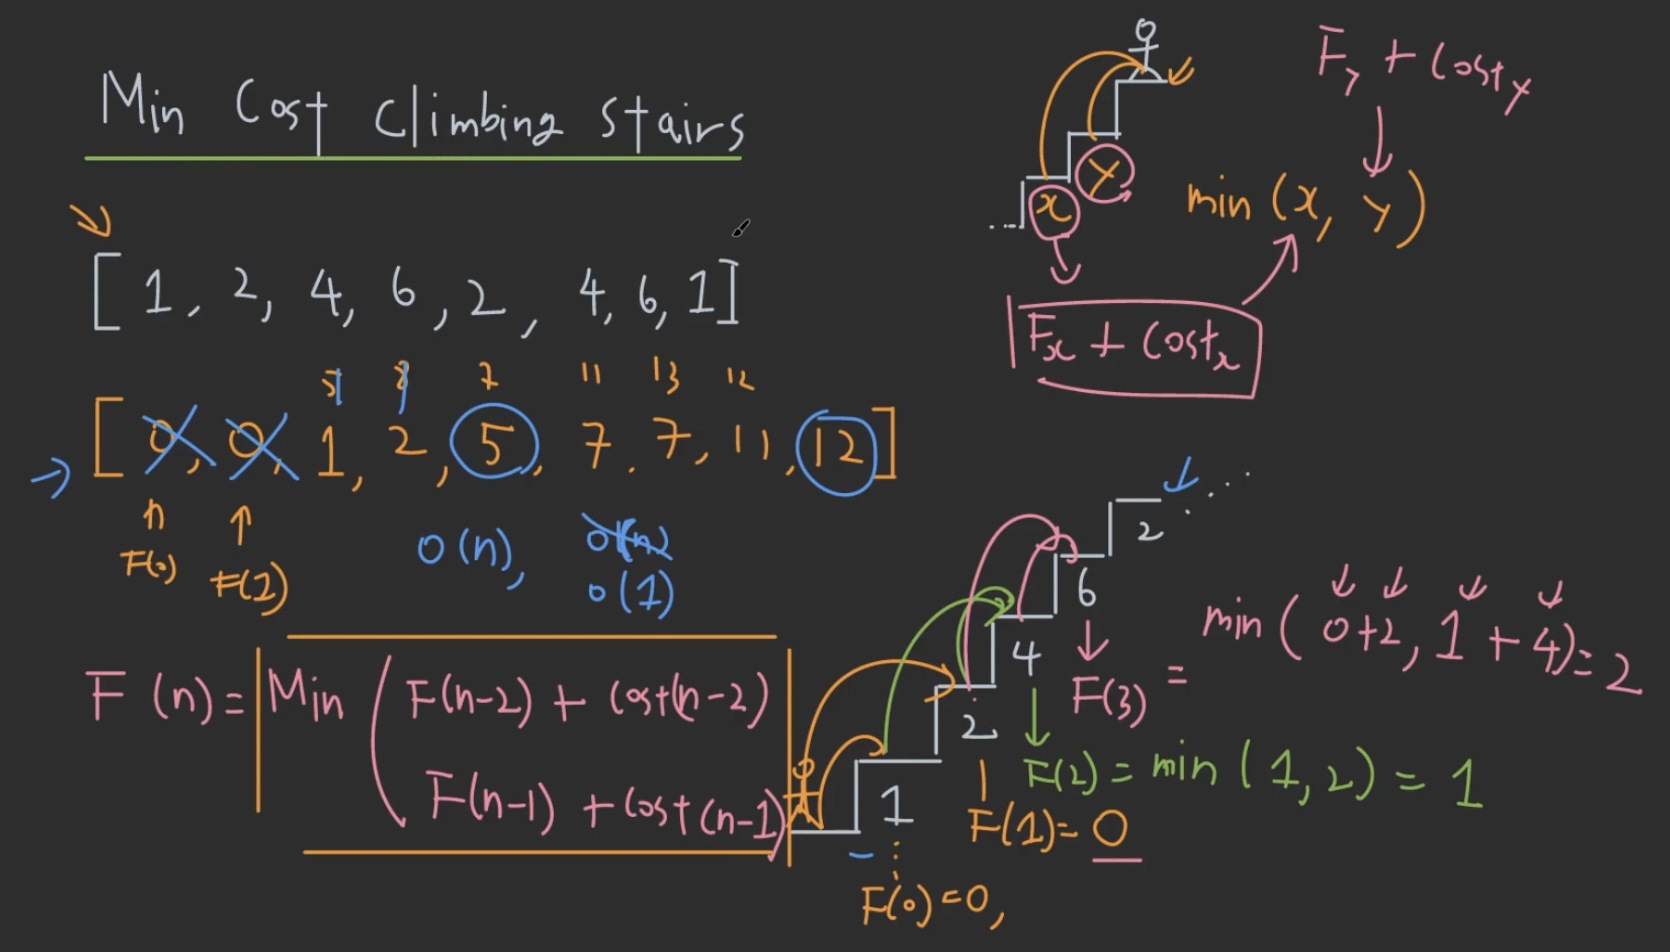 Min Cost Climbing Stairs
[ 1, 2, 4, 6, 2, 4, 6, 1 ]
7 11 13 12
[ 0, 0, 1, 2, 5, 7, 7, 11, 12 ]
F(0) F(1)
O(n), O(n)
O(1)
F(n) = Min ( F(n-2) + cost(n-2)
F(n-1) + cost(n-1) )
x
y
Fy + Costy
min (x, y)
Fx + Costx
1
2
4
6
2
F(0) = 0,
F(1) = 0
F(2) = min (1, 2) = 1
F(3) = min ( 0+2, 1 + 4) = 2